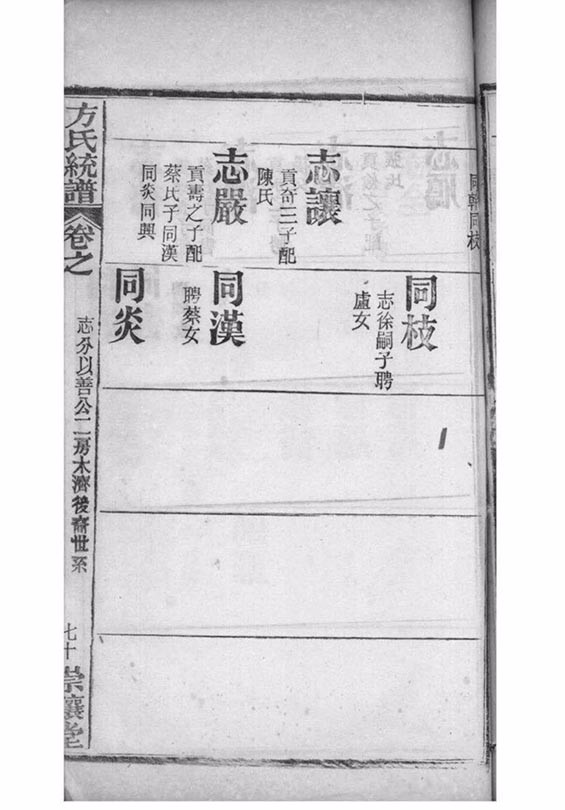 同韓同枝
志讓
貢奇三子配
陳氏
志嚴
貢壽之子配
蔡氏子同漢
同炎同興
同枝
志徐嗣子聘
盧女
同漢
聘蔡女
同炎
方氏統譜
卷之
志分以善公二房木濟後裔世系
七十
崇讓堂